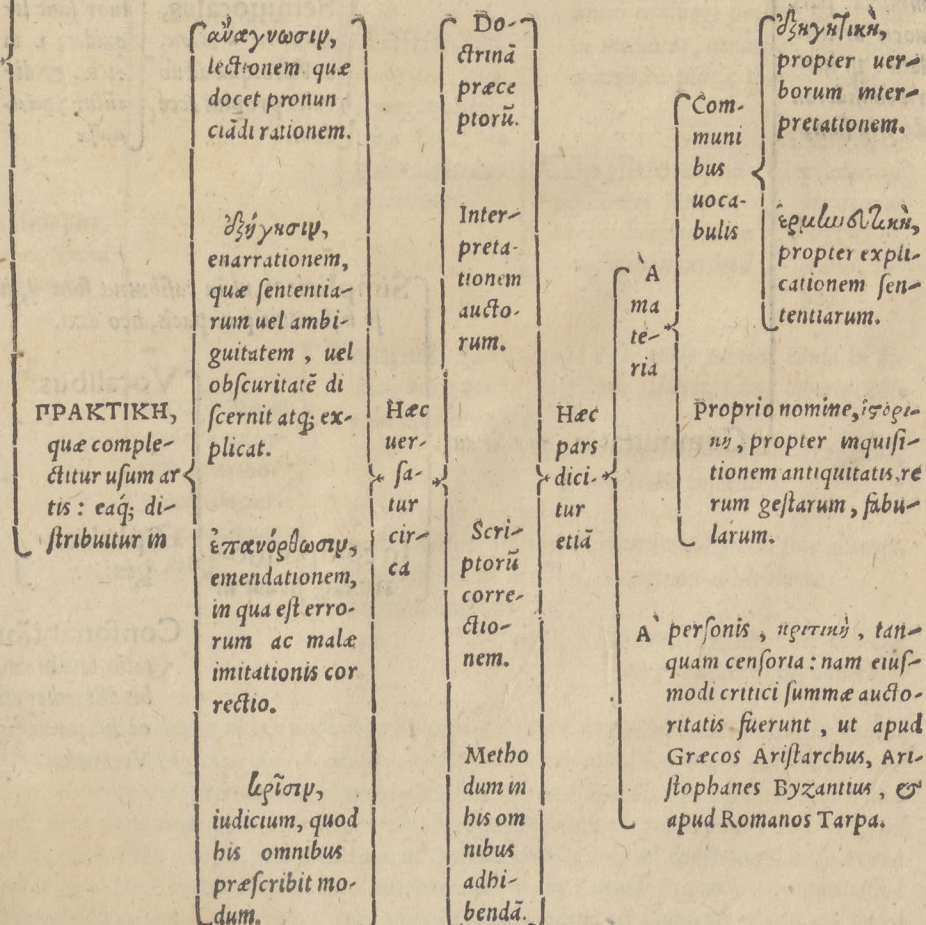 ΠΡΑΚΤΙΚΗ,
quæ comple-
ctitur uſum ar
tis : eaq́; di-
ſtribuitur in
ἀνάγνωσιν,
lectionem quæ
docet pronun
ciãdi rationem.
ἐξήγησιν,
enarrationem,
quæ ſententia-
rum uel ambi-
guitatem , uel
obſcuritatẽ di
ſcernit atq; ex-
plicat.
ἐπανόρθωσιν,
emendationem,
in qua eſt erro-
rum ac malæ
imitationis cor
rectio.
κρῖσιν,
iudicium, quod
his omnibus
præſcribit mo-
dum.
Hæc
uer-
ſa-
tur
cir-
ca
Do-
ctrinã
præce
ptorũ.
Inter-
preta-
tionem
aucto-
rum.
Scri-
ptorũ
corre-
ctio-
nem.
Metho
dum in
his om
nibus
adhi-
bendã.
Hæc
pars
dici-
tur
etiã
À
ma
te-
ria
Com-
muni
bus
uoca-
bulis
ἐξηγητικὴ,
propter uer-
borum inter-
pretationem.
ἑρμηνευτικὴ,
propter expli-
cationem ſen-
tentiarum.
Proprio nomine, ἱστορι-
κὴ, propter inquiſi-
tionem antiquitatis, re
rum geſtarum , fabu-
larum.
À perſonis , κριτικὴ , tan-
quam cenſoria : nam eiuſ-
modi critici ſummæ aucto-
ritatis fuerunt , ut apud
Græcos Ariſtarchus, Ari-
ſtophanes Byzantius , &
apud Romanos Tarpa.